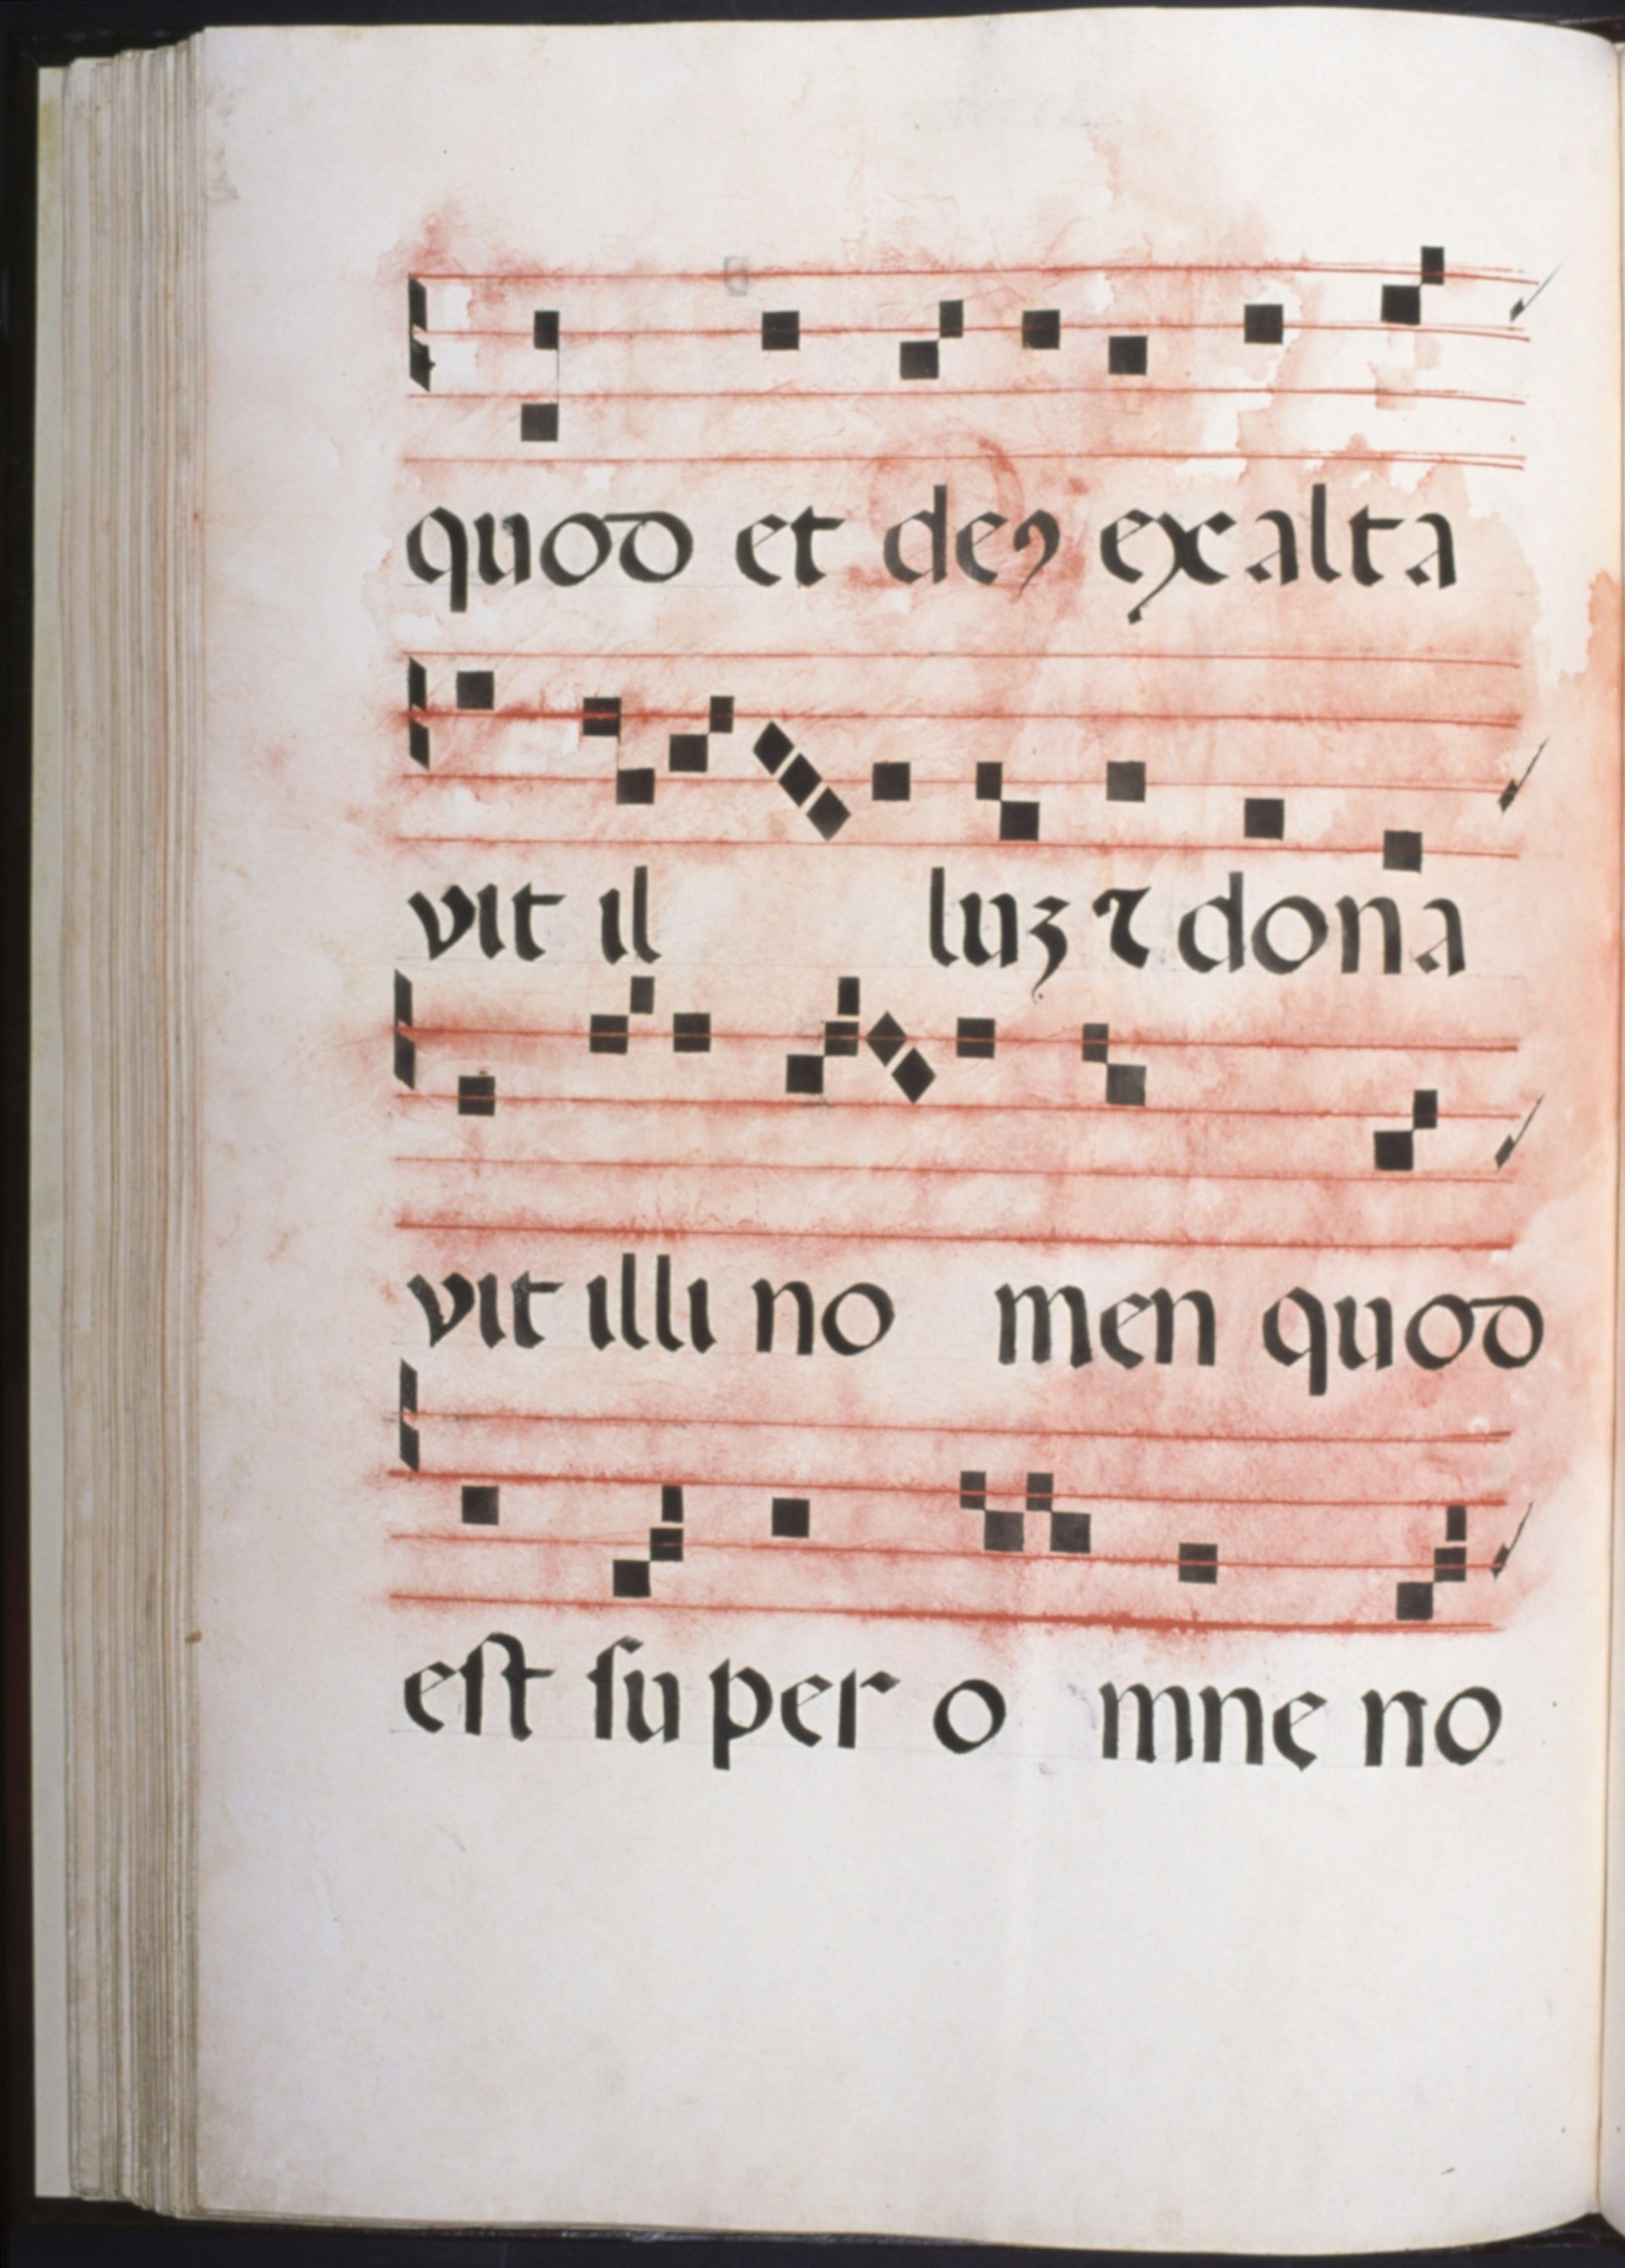 quod et deꝯ exalta
vit il luꝫ ⁊ dona
vit illi no men quod
eſt ſu per o mne no